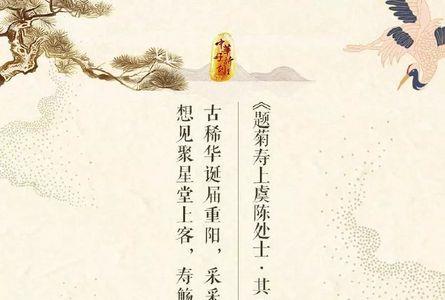 《题菊寿上虞陈处士·其
古稀华诞届重阳，采采
想见聚星堂上客，寿觞